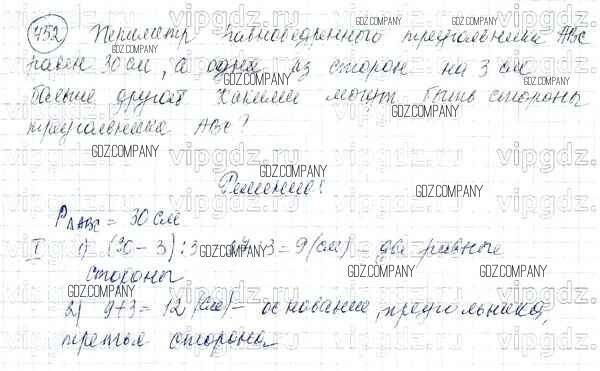 752 Периметр равнобедренного треугольника ABC
равен 30 см, а одна из сторон на 3 см
больше другой. Какими могут быть стороны
треугольника ABC?
Решение:
P△ABC = 30 см
I 1) (30 - 3) : 3 = 27 : 3 = 9 (см) - две равные
стороны
2) 9+3 = 12 (см) - основание треугольника,
третья сторона.
GDZ.COMPANY
vipgdz.ru